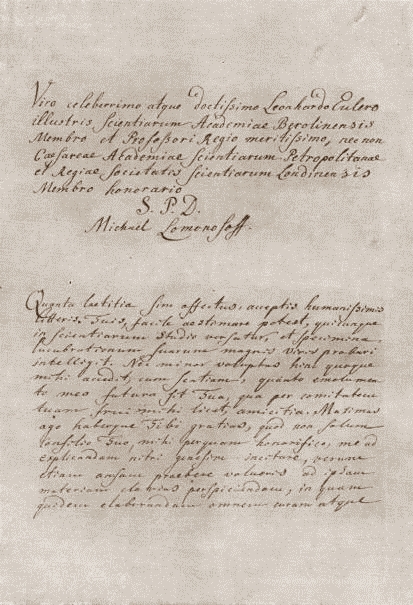 Viro celeberrimo atque doctissimo Leonhardo Eulero
illustris Scientiarum Academiae Berolinensis
Membro et Professori Regio meritissimo, nec non
Caesareae Academiae Scientiarum Petropolitanae
et Regiae Societatis Scientiarum Londinensis
Membro honorario
S. P. D.
Michael Lomonosoff.
Quanta laetitia sim affectus, acceptis humanissimis
litteris Tuis, facile aestimare potest, quicunque
in scientiarum studio versatur, et specimina
lucubrationum suarum magnis viris probari
intellegit. Nec minor voluptas hinc quoque
mihi accedit, cum sentiam, quanto emolumen
to meo futura sit Tua, qua per comitatem
tuam frui mihi licet, amicitia. Maximas
ago habeoque Tibi gratias, quod non solum
consilio Tuo, mihi perquam honorifico, me ad
explicandam nitri genesim incitare, verum
etiam ansam praebere volueris ad ipsam
materiam clarius perspiciendam, in quam
quidem elaborandam omnem curam atque